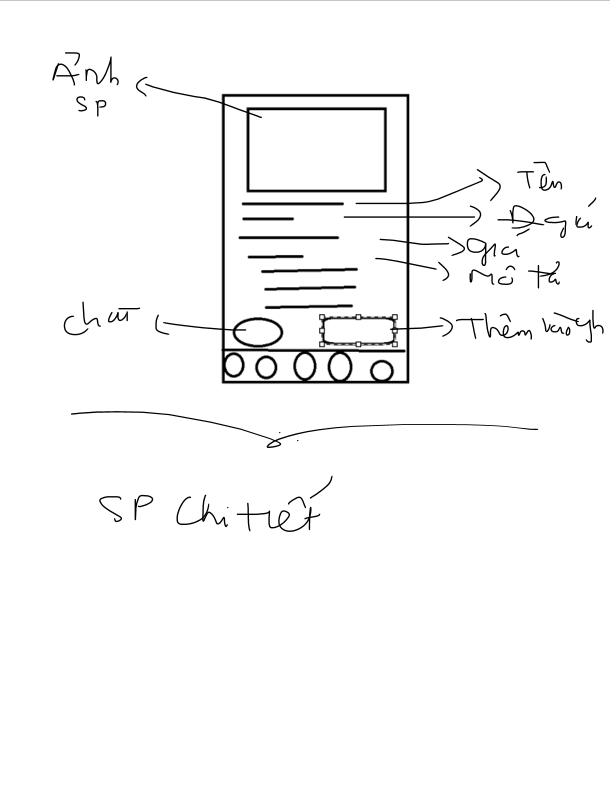 Ảnh
SP
Tên
Đ giá
giá
Mô tả
chat
Thêm vào gh
SP Chi tiết